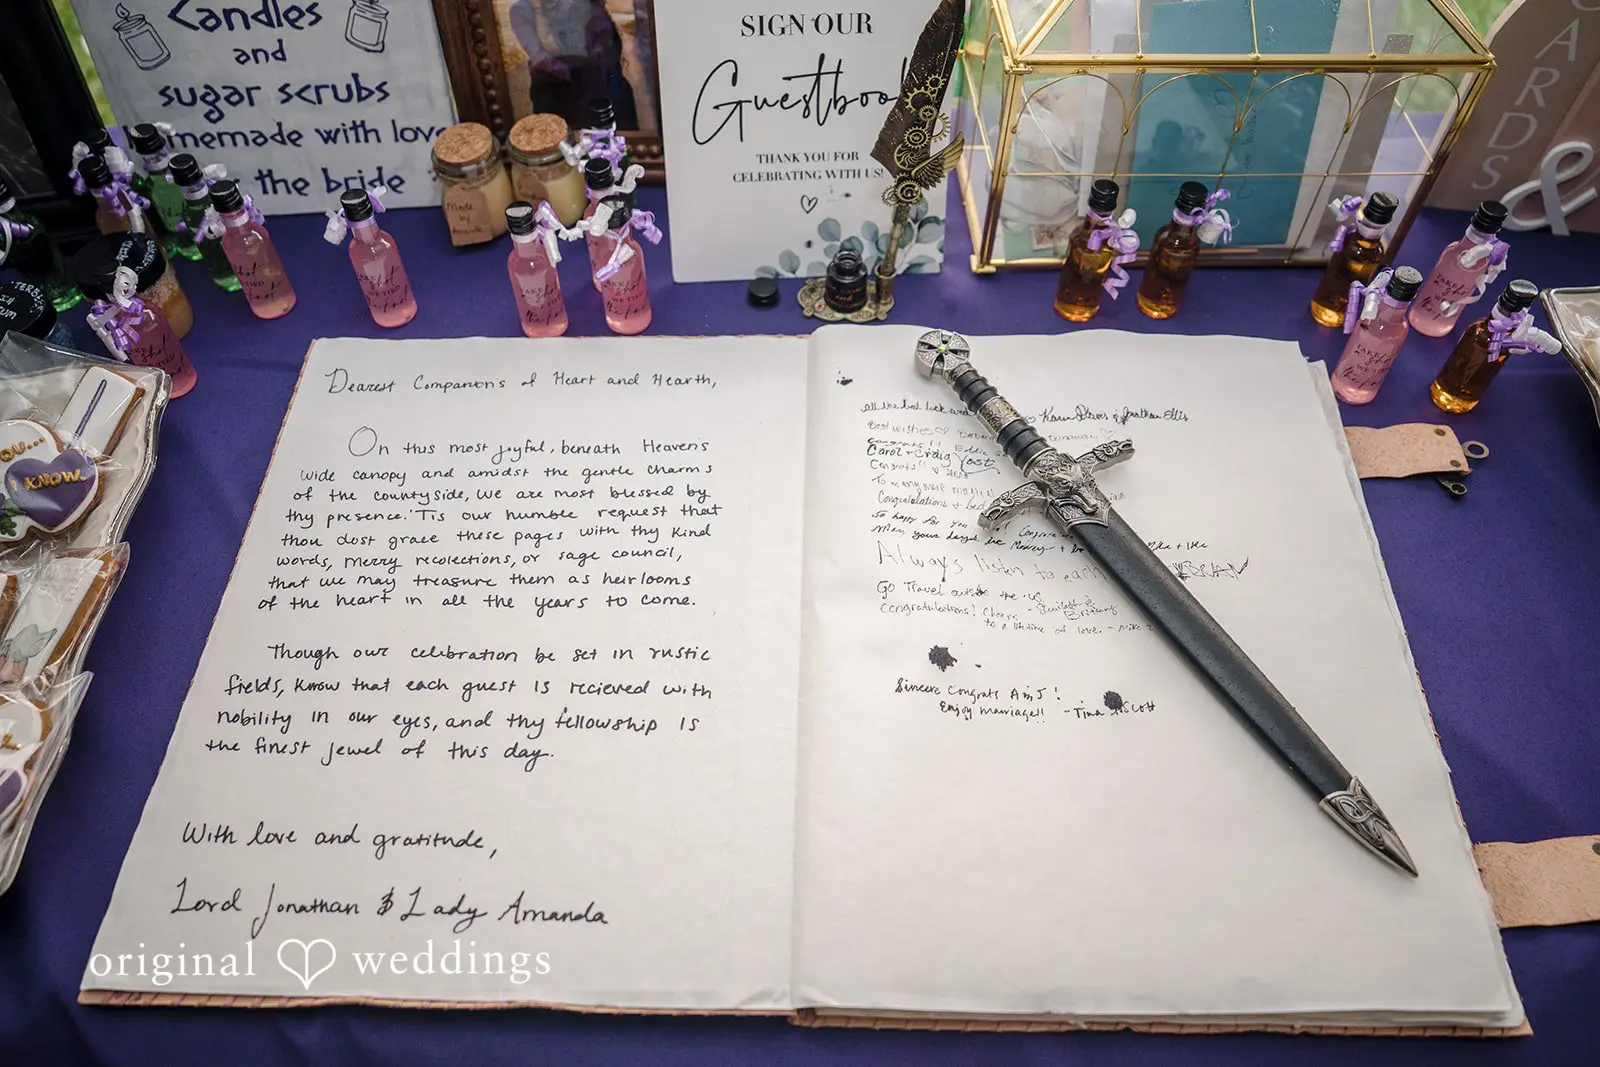 Candles
and
sugar scrubs
homemade with love
the bride
SIGN OUR
Guestbook
THANK YOU FOR
CELEBRATING WITH US!
CARDS
&
Made by
I KNOW.
Dearest Companions of Heart and Hearth,
On this most joyful, beneath Heaven's
wide canopy and amidst the gentle charms
of the countyside, we are most blessed by
thy presence. 'Tis our humble request that
thou dost grace these pages with thy kind
words, merry recolections, or sage council,
that we may treasure them as heirlooms
of the heart in all the years to come.
Though our celebration be set in rustic
fields, know that each guest is recieved with
nobility in our eyes, and thy fellowship is
the finest jewel of this day.
With love and gratitude,
Lord Jonathan & Lady Amanda
all the best luck and
Best wishes
Congrats!!
Carol + Craig Yost
Congrats!!
To many more magical
Congratulations &
So happy for you
May your
Always listen to each
Go Travel outside the US.
Congratulations! Cheers
to a lifetime of love. - Mike
Sincere Congrats A & J!
Enjoy marriage!! - Tina & Scott
original weddings